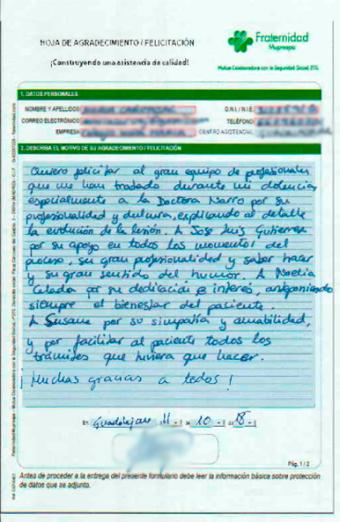 HOJA DE AGRADECIMIENTO / FELICITACIÓN
Fraternidad
Muprespa
¡Construyendo una asistencia de calidad!
Mutua Colaboradora con la Seguridad Social 275
1. DATOS PERSONALES
NOMBRE Y APELLIDOS
D.N.I./N.I.E.
CORREO ELECTRÓNICO
TELÉFONO
EMPRESA
CENTRO ASISTENCIAL
2. DESCRIBA EL MOTIVO DE SU AGRADECIMIENTO / FELICITACIÓN
Quiero felicitar al gran equipo de profesionales
que me han tratado durante mi dolencia,
especialmente a la Doctora Narro por su
profesionalidad y dulzura, explicando al detalle
la evolución de la lesión. A Jose Luis Gutierrez
por su apoyo en todos los momentos del
proceso, su gran profesionalidad y saber hacer
y su gran sentido del humor. A Noelia
Calada por su dedicación e interés, anteponiendo
siempre el bienestar del paciente.
A Susana por su simpatía y amabilidad,
y por facilitar al paciente todos los
trámites que tuviera que hacer.
¡Muchas gracias a todos!
En Guadalajara 11 - de 10 - de 18 -
Pág. 1 / 2
Antes de proceder a la entrega del presente formulario debe leer la información básica sobre protección
de datos que se adjunta.